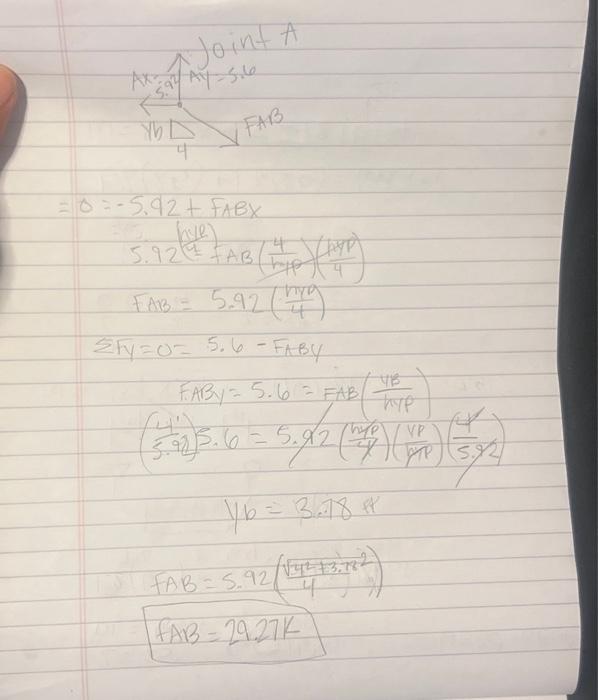 Joint A
Ax=5.92 Ay=5.6
FAB
Yb
4
=0=-5.92+FABX
5.92(hyp/4)=FAB(4/hyp)(hyp/4)
FAB = 5.92(hyp/4)
ΣFy=0= 5.6 - FABY
FABY = 5.6 = FAB(YB/hyp)
(4/5.92)5.6 = 5.92(hyp/4)(YB/hyp)(4/5.92)
Yb = 3.78 ft
FAB = 5.92(√4²+3.78²/4)
FAB = 29.27K